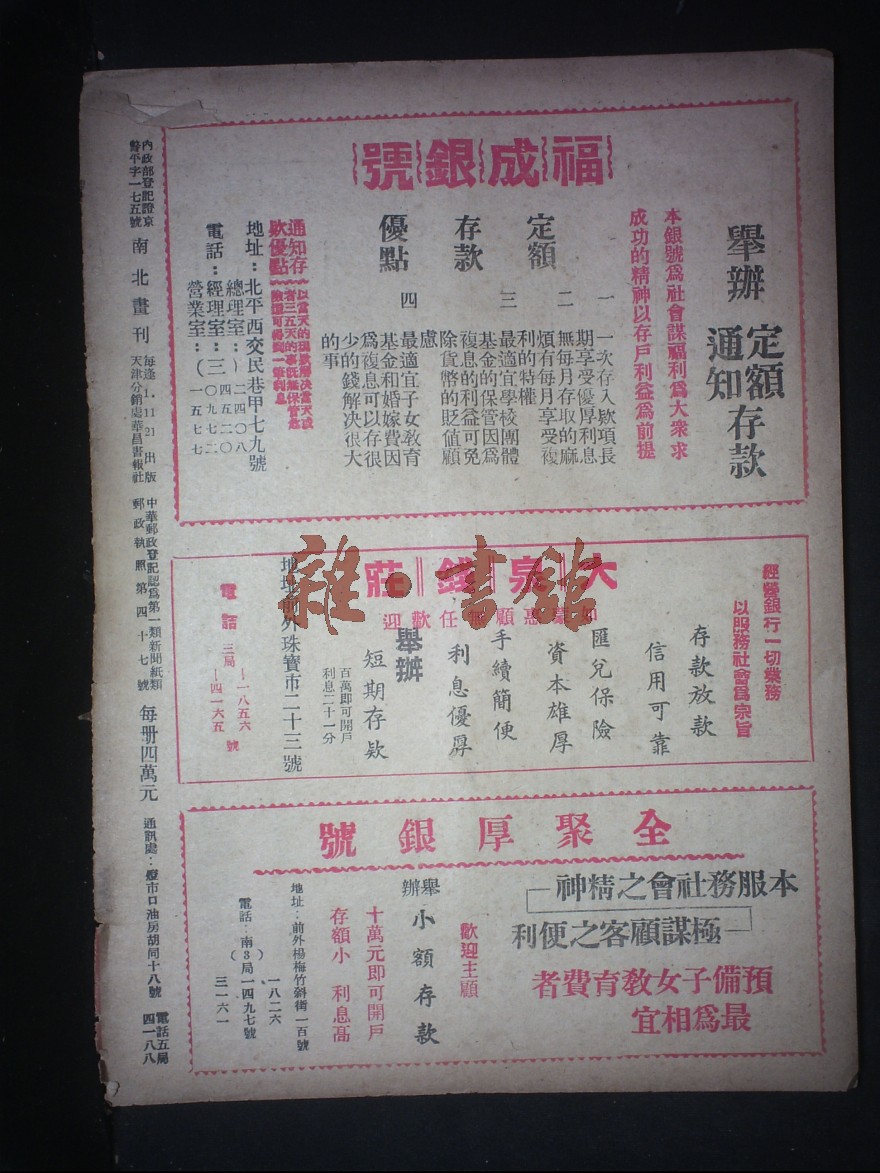 福成銀號
舉辦
定額
通知
存款
本銀號爲社會謀福利爲大衆求
成功的精神以存戶利益爲前提
定額
存款
優點
一 一次存入欵項長
期享受優厚利息
二 無每月存取的麻
煩有每月享受複
利的特權
三 最適宜學校團體
基金的保管因爲
複息的利益可免
除貨幣的貶值顧
慮
四 最適宜子女教育
基金和婚嫁費因
爲複息可以存很
少的錢解決很大
的事
通知存
欵優點
地址：北平西交民巷甲七九號
電話：
總理室：
經理室：三
營業室：
二四〇八
四五二〇
〇九七二
一五七七
大泉錢莊
經營銀行一切業務
以服務社會爲宗旨
如蒙惠顧無任歡迎
存款放款
信用可靠
匯兌保險
資本雄厚
手續簡便
利息優厚
舉辦
短期存欵
百萬即可開戶
利息二十一分
地址前外珠寶市二十三號
電話 三局
一八五六
四一六五
號
全聚厚銀號
本服務社會之精神
極謀顧客之便利
預備子女教育費者
最爲相宜
歡迎主顧
舉辦
小額存款
十萬元即可開戶
存額小 利息高
地址：前外楊梅竹斜街一百號
電話：南3局
一八二六
一四九七號
三一六一
內政部登記證京
警平字一七五號
南北畫刊
每逢1,11,21出版
天津分銷處華昌書報社
中華郵政登記認爲第一類新聞紙類
郵政執照第四十七號
每冊四萬元
通訊處：燈市口油房胡同十八號
電話五局
四一八八
雜·書館